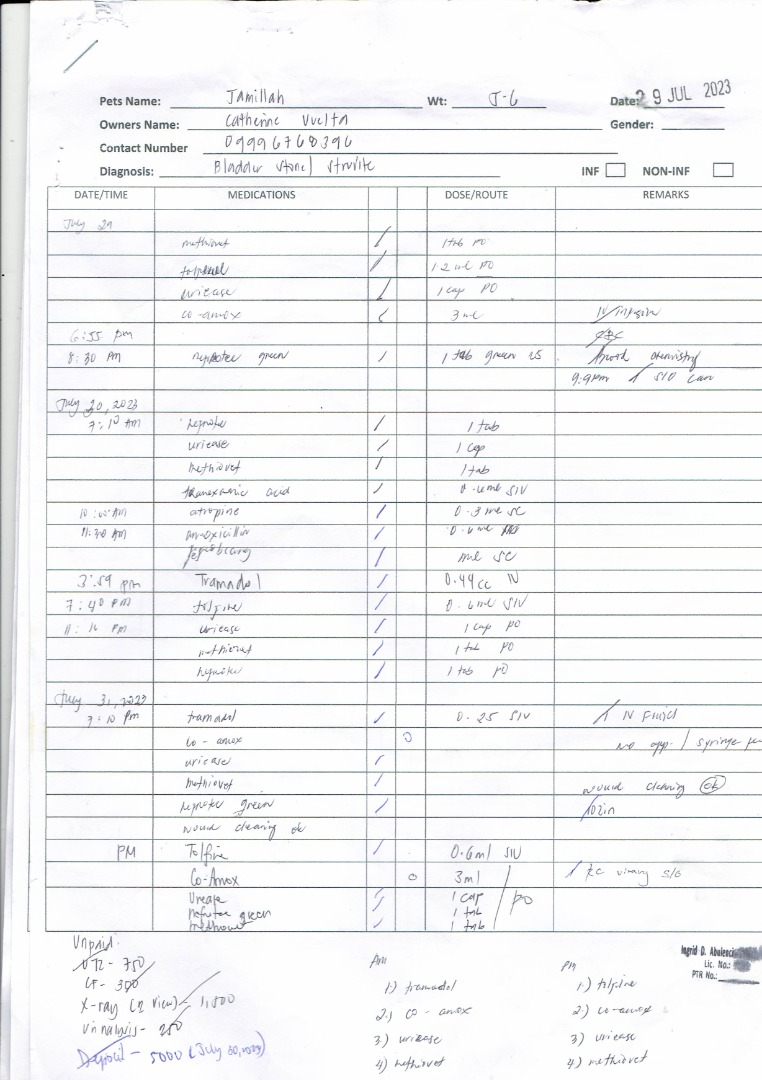 Pets Name: Jamillah Wt: J-6 Date: 29 JUL 2023
Owners Name: Catherine Vuelta Gender:
Contact Number 09996768396
Diagnosis: Bladder stone/ struvite INF NON-INF
DATE/TIME MEDICATIONS DOSE/ROUTE REMARKS
July 29
methiovet / 1 tab PO
/ 1 2 ml PO
uricase / 1 cap PO
co-amox / 3 ml IV infusion
6:55 pm
8:30 PM green / 1 tab green blood chemistry
9.9pm / S/O
July 30, 2023
7:10 AM / 1 tab
uricase / 1 cap
methiovet / 1 tab
tranexamic acid / SIV
10:00 AM atropine / 0.3 ml SC
11:30 AM amoxicillin /
/ ml SC
3:59 pm Tramadol / 0.44 cc IV
7:40 PM tolfine / 0.6 ml SIV
11:16 PM uricase / 1 cap PO
methiovet / 1 tab PO
/ 1 tab PO
July 31, 2023
tramadol / 0.25 SIV / IV Fluid
co-amox O No app. / syringe
uricase /
methiovet / wound cleaning ok
green /
wound cleaning ok
PM Tolfine / 0.6ml SIV
Co-Amox O 3ml
/ 1 cap PO
green / 1 tab
methiovet / 1 tab
Unpaid:
UTZ - 750
CF - 300
X-ray (2 view) - 1,500
Urinalysis - 250
Deposit - 5000 (July 30, 2023)
Am
1) tramadol
2.) co-amox
3) uricase
4) methiovet
PM
1.) tolfine
2.) co-amox
3) uricase
4.) methiovet
Ingrid D.
Lic. No.:
PTR No.: